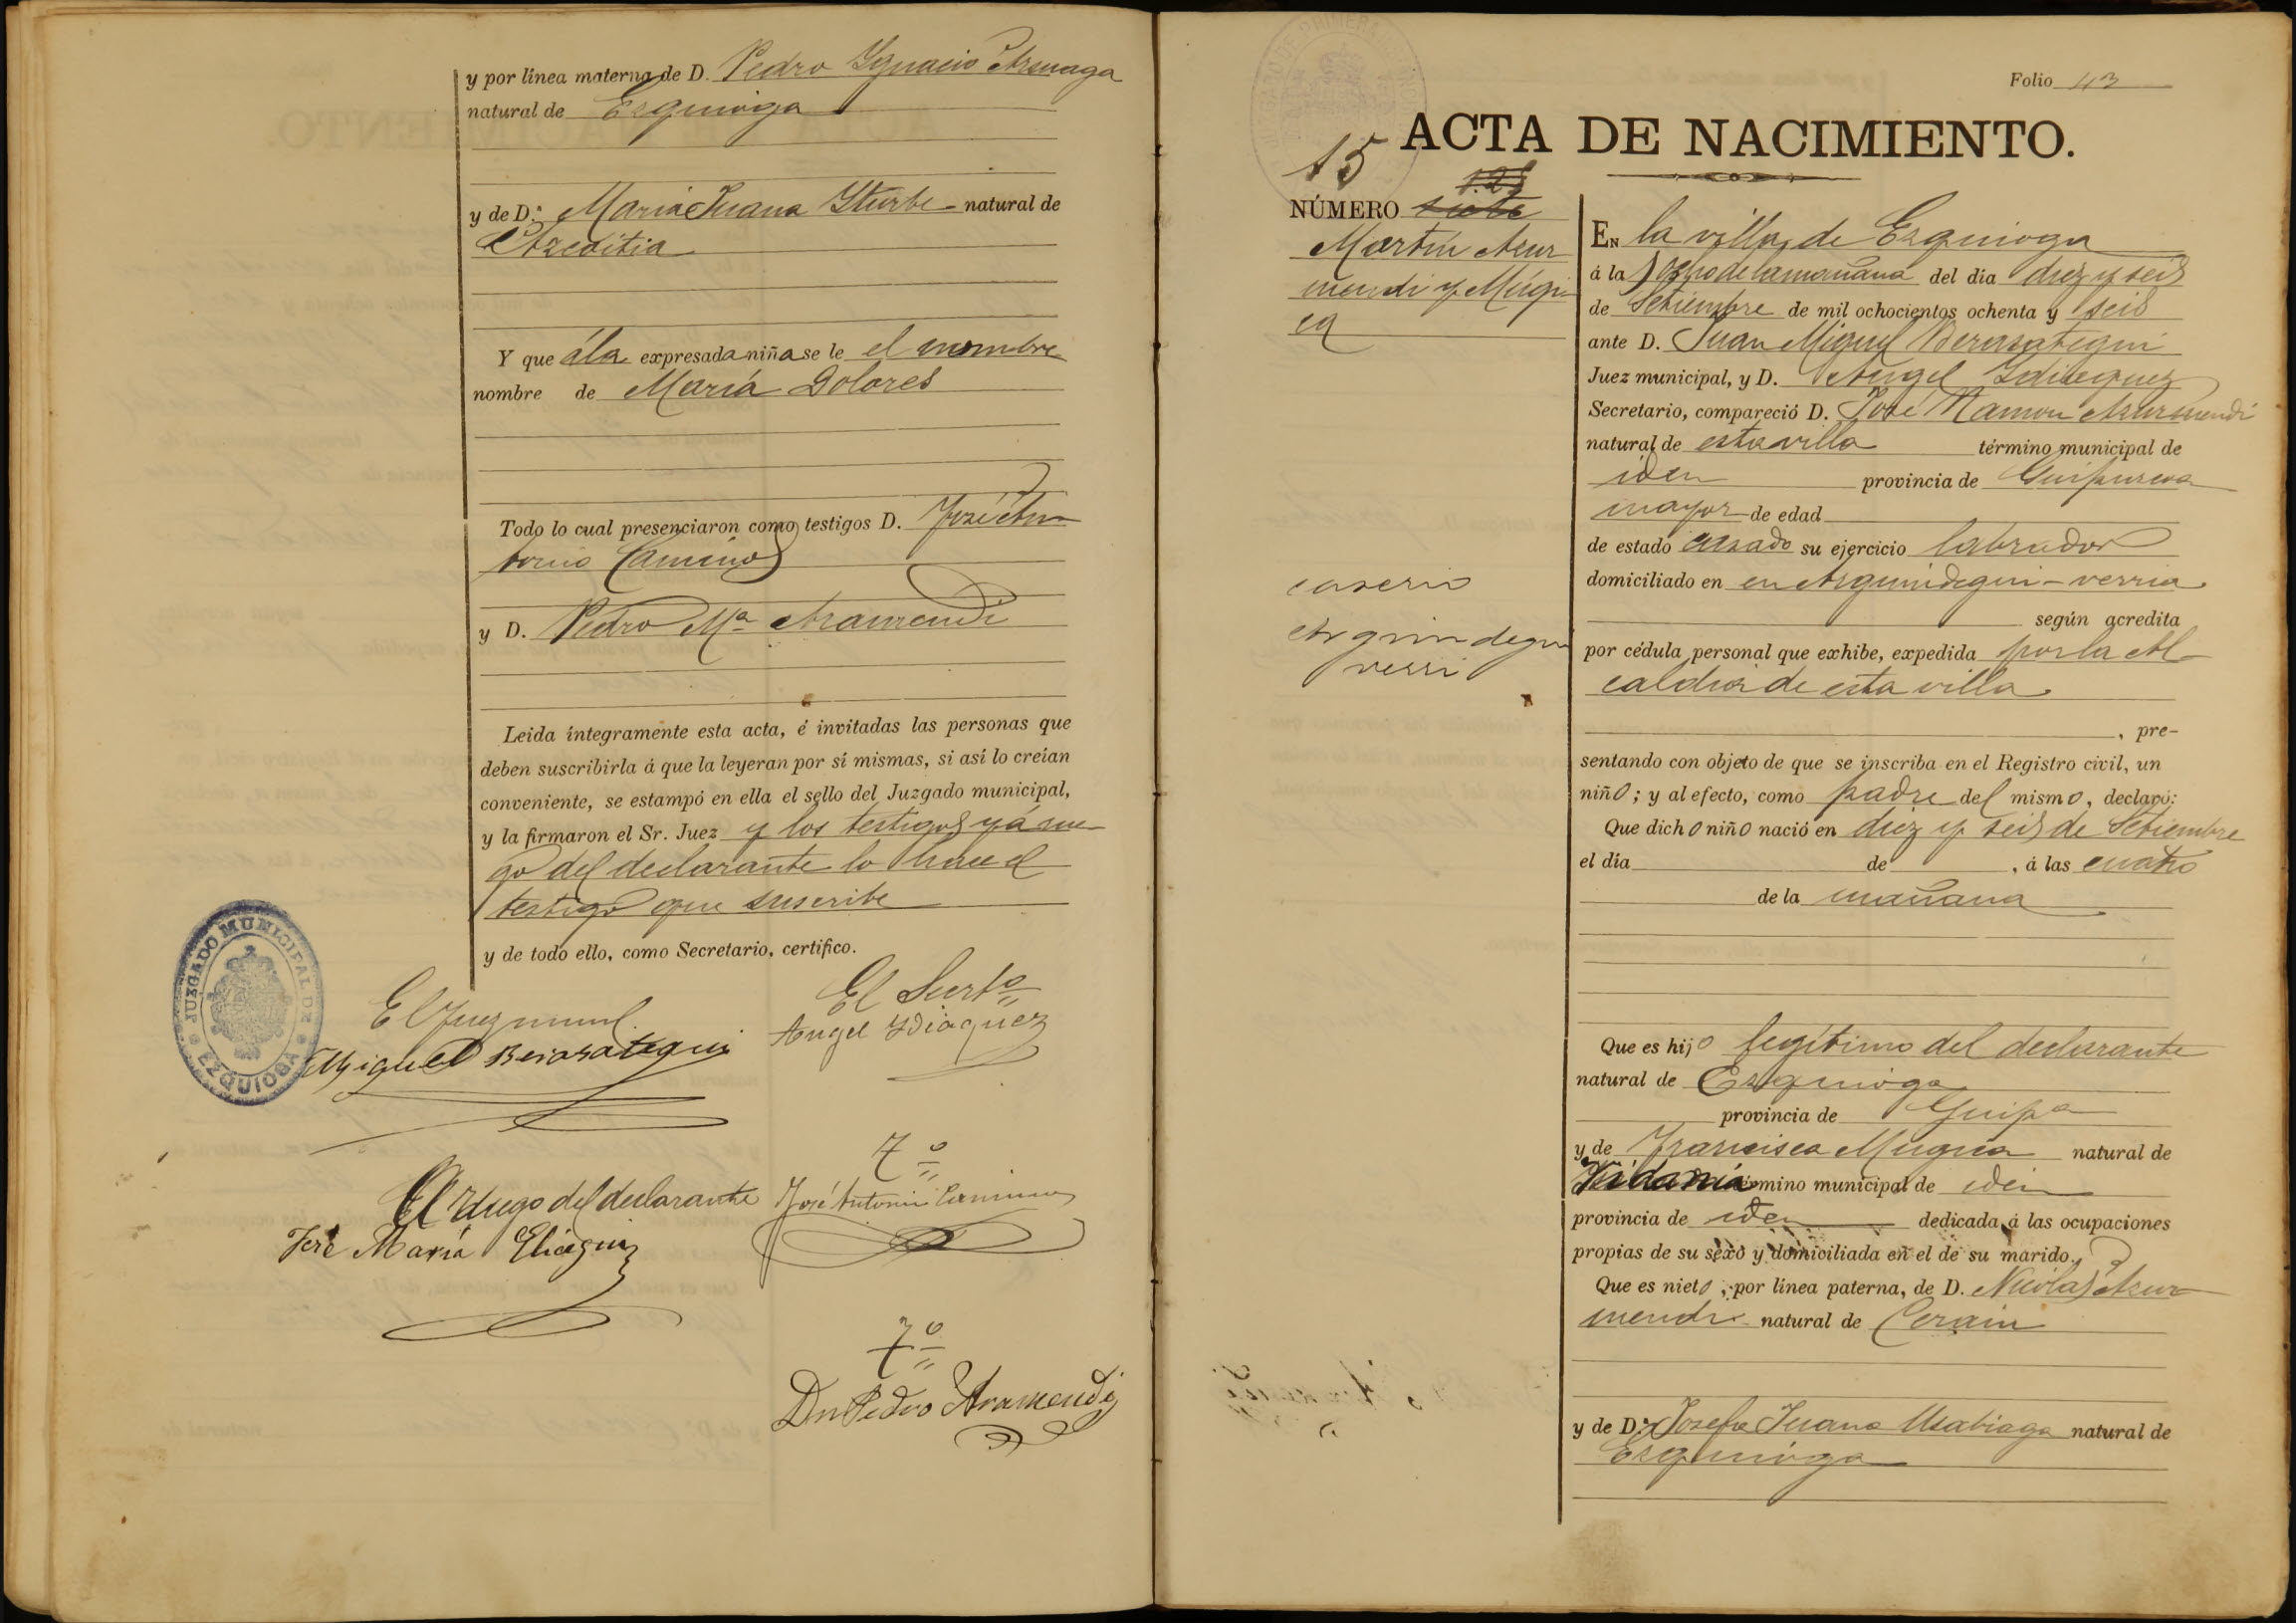 y por línea materna de D. Pedro Ygnacio Arsuaga
natural de Ezquioga
y de D.ª María Juana Yturbe natural de
Azcoitia
Y que á la expresada niña se le el nombre
nombre de María Dolores
Todo lo cual presenciaron como testigos D. José An
tonio Caminos
y D. Pedro Mª Aramendi
Leida íntegramente esta acta, é invitadas las personas que
deben suscribirla á que la leyeran por sí mismas, si así lo creían
conveniente, se estampó en ella el sello del Juzgado municipal,
y la firmaron el Sr. Juez y los testigos y á rue
go del declarante lo hace el
testigo que suscribe
y de todo ello, como Secretario, certifico.
JUZGADO MUNICIPAL DE EZQUIOGA
El Juez munl.
Miguel Berasategui
El Secrtº
Angel Ydiaquez
Tº
A ruego del declarante
José Antonio Caminos
José María
Tº
Dn Pedro Aramendi
Folio 43
ACTA DE NACIMIENTO.
15
NÚMERO siete
Martín Azur
mendi y Múgi
ca
caserio
Arguindegui
verri
EN la villa de Ezquioga
á la s ocho de la mañana del día diez y seis
de Setiembre de mil ochocientos ochenta y seis
ante D. Juan Miguel Berasategui
Juez municipal, y D. Angel Ydiaquez
Secretario, compareció D. José Ramon Azurmendi
natural de esta villa término municipal de
iden provincia de Guipuzcoa
mayor de edad
de estado casado su ejercicio labrador
domiciliado en en Arguindegui-verria
según acredita
por cédula personal que exhibe, expedida por la Al
caldia de esta villa
, pre-
sentando con objeto de que se inscriba en el Registro civil, un
niño; y al efecto, como padre del mismo, declaró:
Que dicho niño nació en diez y seis de Setiembre
el día de , á las cuatro
de la mañana
Que es hijo legítimo del declarante
natural de Ezquioga
provincia de Guipª
y de Francisca Mugica natural de
Vidania término municipal de iden
provincia de iden dedicada á las ocupaciones
propias de su sexo y domiciliada en el de su marido.
Que es nieto, por línea paterna, de D. Nicolas Azur
mendi natural de Cerain
y de D.ª Josefa Juana Usabiaga natural de
Ezquioga